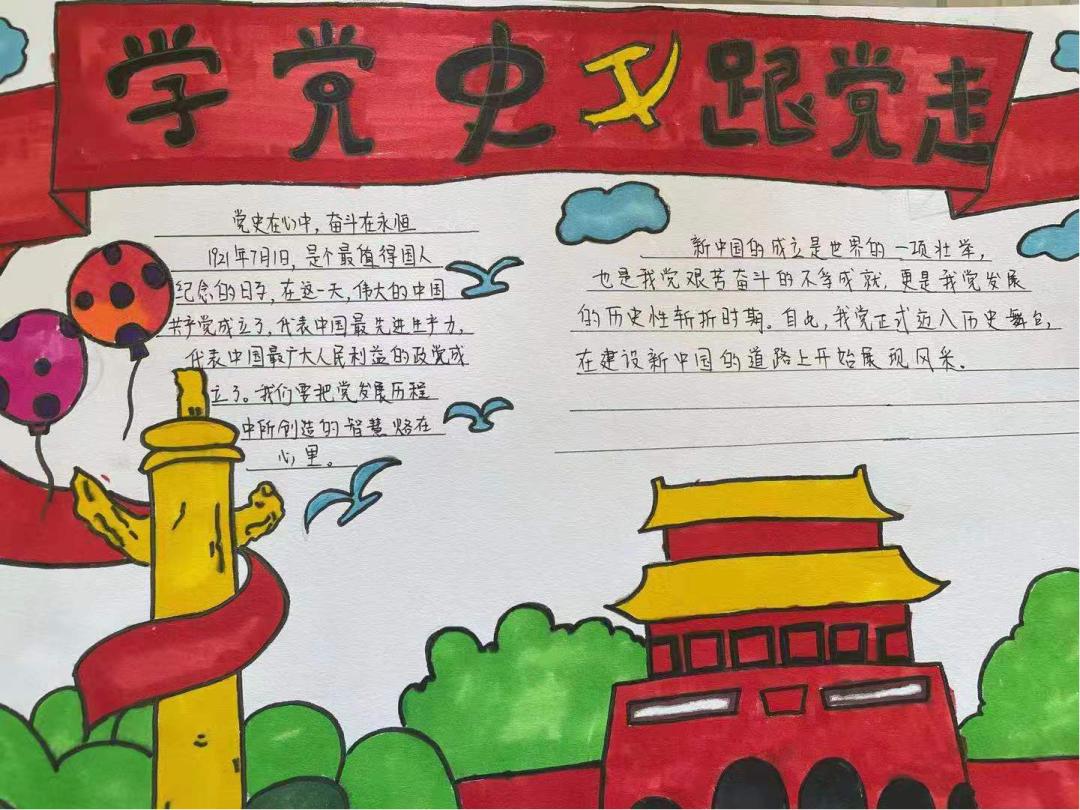 学党史 跟党走
党史在心中，奋斗在永恒
1921年7月1日，是个最值得国人
纪念的日子，在这一天，伟大的中国
共产党成立了，代表中国最先进生产力，
代表中国最广大人民利益的政党成
立了。我们要把党发展历程
中所创造的智慧烙在
心里。
新中国的成立是世界的一项壮举，
也是我党艰苦奋斗的不等成就，更是我党发展
的历史性斩折时期。自此，我党正式迈入历史舞台，
在建设新中国的道路上开始展现风采。